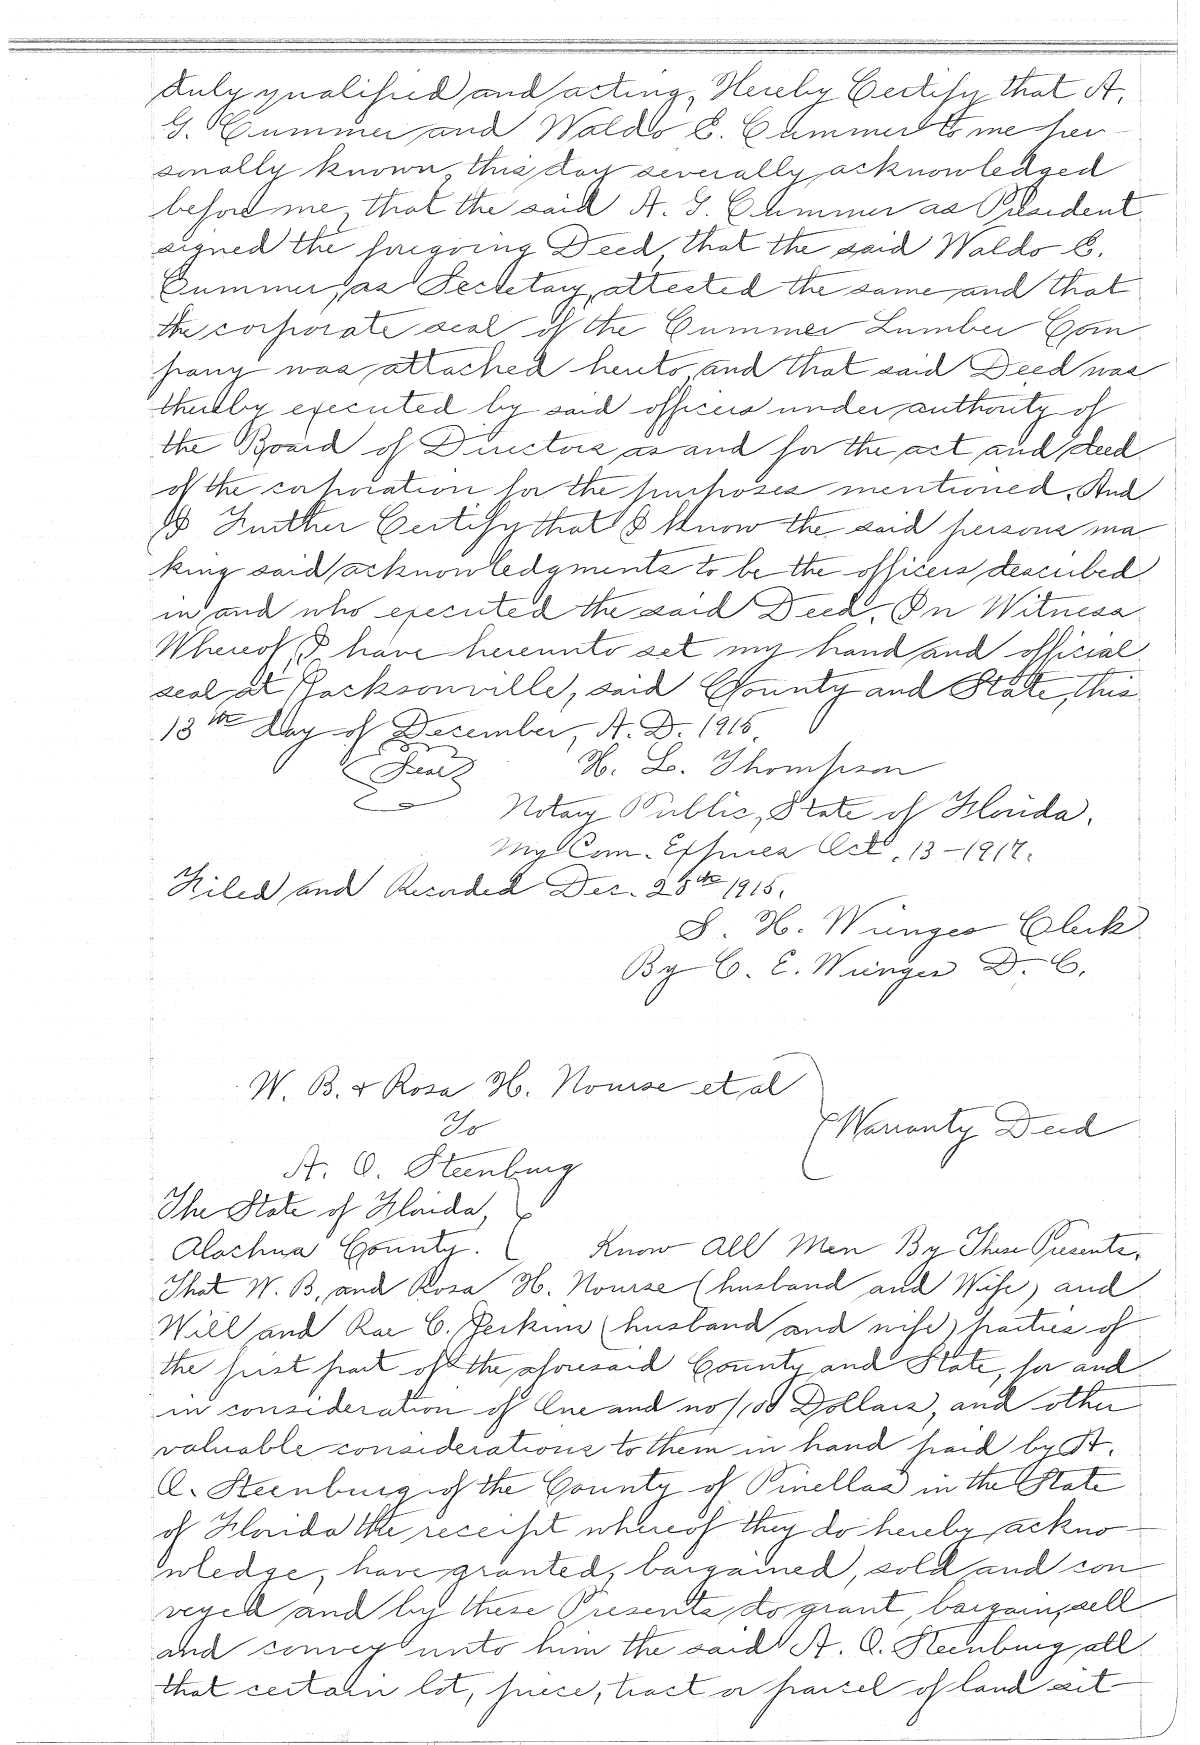 duly qualified and acting, Hereby Certify that A.
G. Cummer and Waldo E. Cummer to me per-
sonally known, this day severally acknowledged
before me, that the said A. G. Cummer as President
signed the foregoing Deed, that the said Waldo E.
Cummer, as Secretary, attested the same and that
the corporate seal of the Cummer Lumber Com
pany was attached hereto, and that said Deed was
thereby executed by said officers under authority of
the Board of Directors as and for the act and deed
of the corporation for the purposes mentioned. And
I Further Certify that I know the said persons ma
king said acknowledgments to be the officers described
in and who executed the said Deed. In Witness
Whereof, I have hereunto set my hand and official
seal at Jacksonville, said County and State, this
13th day of December, A. D. 1915.
Seal H. L. Thompson
Notary Public, State of Florida.
My Com. Expires Oct. 13-1917.
Filed and Recorded Dec. 28th 1915.
S. H. Wienges Clerk
By C. E. Wienges D. C.
W. B. & Rosa H. Nourse et al
To
Warranty Deed
A. O. Steenburg
The State of Florida,
Alachua County. Know All Men By These Presents,
That W. B. and Rosa H. Nourse (husband and Wife) and
Will and Rae C. Jerkins (husband and wife) parties of
the first part of the aforesaid County and State, for and
in consideration of One and no/100 Dollars, and other
valuable considerations to them in hand paid by A.
O. Steenburg of the County of Pinellas in the State
of Florida the receipt whereof they do hereby ackno-
wledge, have granted, bargained, sold and con
veyed and by these Presents do grant, bargain, sell
and convey unto him the said A. O. Steenburg all
that certain lot, piece, tract or parcel of land sit-